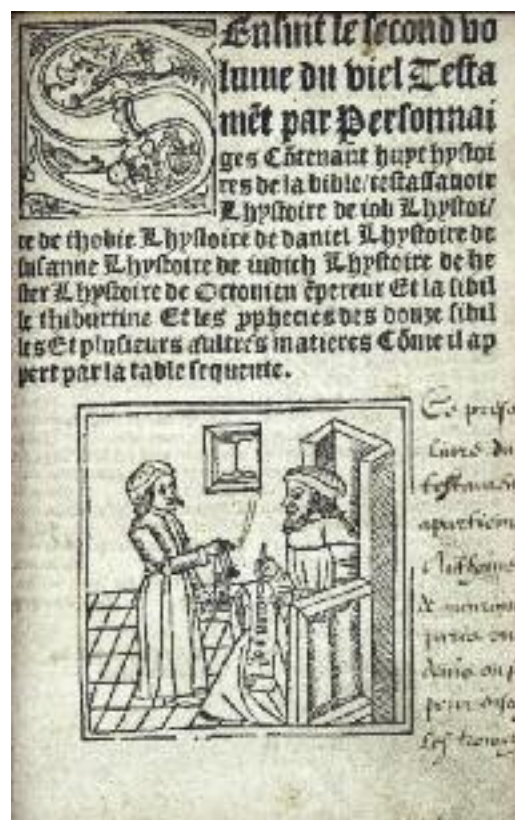 Ensuit le second vo
lume du viel Testa
mēt par Personnai
ges Cōtenant huyt hystoi
res de la bible/cestassauoir
Lhystoire de iob Lhystoi/
re de thobie Lhystoire de daniel Lhystoire de
susanne Lhystoire de iudich Lhystoire de he
ster Lhystoire de Octouien ēpereur Et la sibil
le thiburtine Et les ꝓphecies des douze sibil
les Et plusieurs aultres matieres Cōme il ap
pert par la table sequente.
Ce prese
liure du
testament
apartient